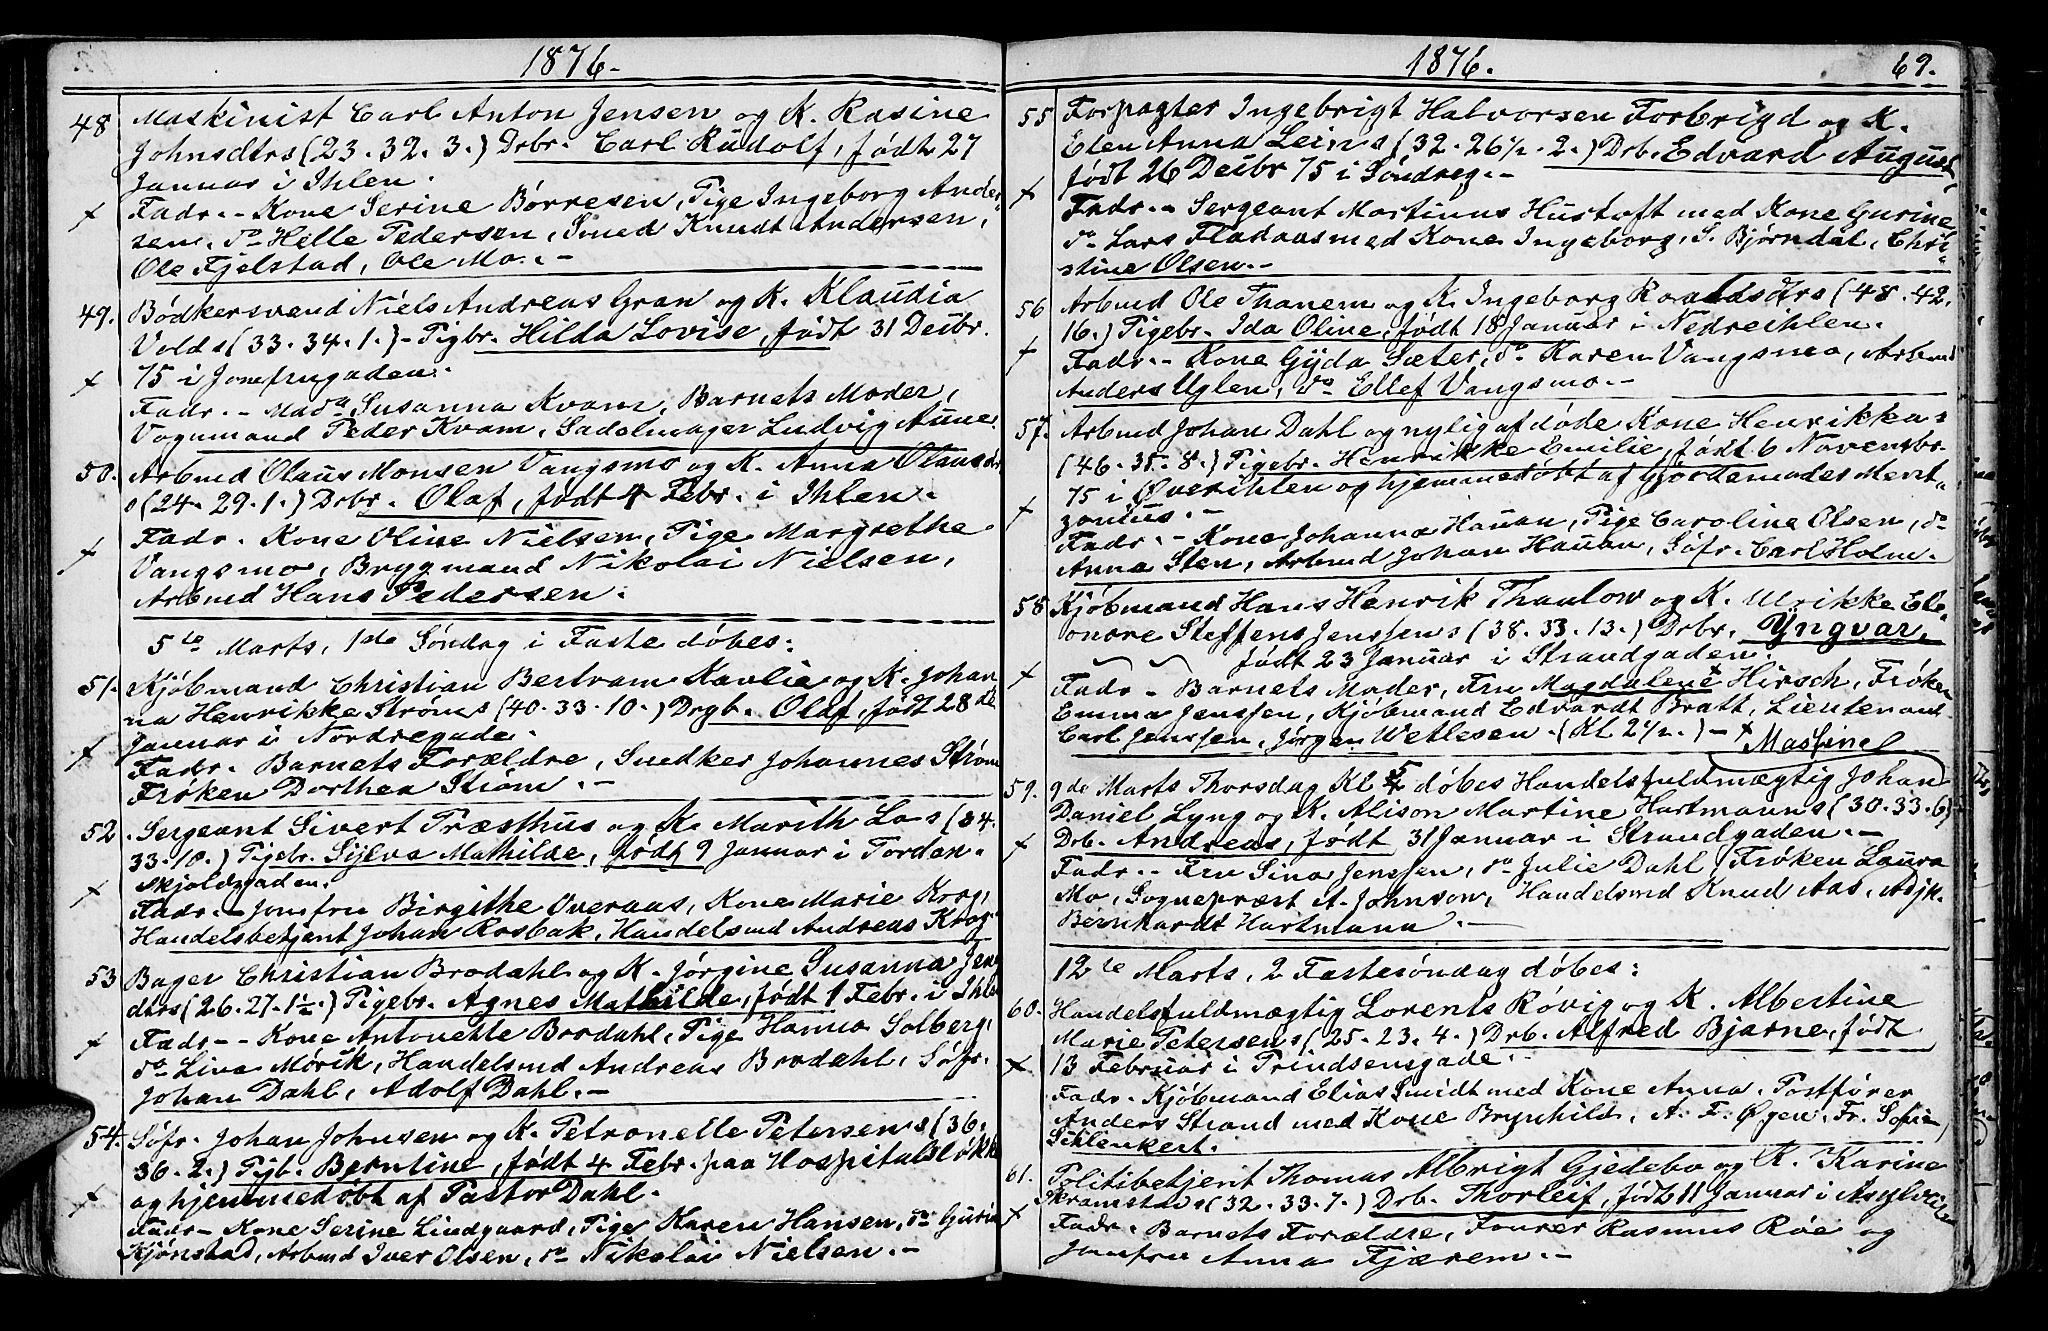 1876.
48 Maskinist Carl Anton Jensen og K. Rasine
Johnsdtrs (23. 32. 3.) Drbr. Carl Rudolf, født 27
Januar i Ihlen.
+ Fadr. - Kone Serine Børresen, Pige Ingeborg Ander-
sen, do Helle Pedersen, Smed Knudt Andersen,
Ole Fjelstad, Ole Mo. -
49. Bødkersvend Niels Andreas Gran og K. Klaudia
Volds (33. 34. 1.) - Pigbr. Hilda Lovise, født 31 Decbr.
+ 75 i Jomfrugaden.
Fadr. - Mada Susanna Kvam, Barnets Moder,
Vognmand Peder Kvam, Sadelmager Ludvig Aune.
50. Arbmd Olaus Monsen Vangsmo og K. Anna Olausdtr
s (24. 29. 1.) Drbr. Olaf, født 4 Febr. i Ihlen.
+ Fadr. Kone Oline Nielsen, Pige Margrethe
Vangsmo, Brygmand Nikolai Nielsen,
Arbmd Hans Pedersen.
5te Marts, 1ste Søndag i Faste døbes:
51. Kjøbmand Christian Bertram Kavlie og K. Johan
na Henrikke Strøms (40. 33. 10.) Drgb. Olaf, født 28de
+ Januar i Nordregade.
Fadr. Barnets Forældre, Snedker Johannes Strøm
Frøken Dorthea Strøm. -
52. Sergeant Sivert Træsthus og K. Marith Los (34.
33. 10.) Pigebr. Sylva Mathilde, født 9 Januar i Tordan-
+ skjoldsgaden.
Fadr. - Jomfru Birgithe Overaas, Kone Marie Krog,
Handelsbetjent Johan Rosbak, Handelsmd Andreas Krog
53 Bager Christian Brodahl og K. Jørgine Susanna Jens
dtrs (26. 27. 1½.) Pigebr. Agnes Mathilde, født 1 Febr. i Ihlen
+ Fadr - - Kone Antonette Brodahl, Pige Hanna Solberg,
do Lina Mørik, Handelsmd Andreas Brodahl, Søfr.
Johan Dahl, Adolf Dahl. -
54. Søfr. Johan Johnsen og K. Petronelle Petersens (36.
36. 2.) Pigb. Berntine, født 4 Febr. paa Hospitalsløkke
+ og hjemmedøbt af Pastor Dahl.
Fadr - Kone Serine Lindgaard, Pige Karen Hansen, do Guria
Kjønstad, Arbmd Iver Olsen, do Nikolai Nielsen. -
1876. 69.
55 Forpagter Ingebrigt Halvorsen Forbrigd og K.
Elen Anna Leins (32. 26½. 2.) Drb. Edvard August,
+ født 26 Decbr 75 i Søndreg. -
Fadr. - Sergeant Martinus Hustoft med Kone Gurine
do Lars Fladaas med Kone Ingeborg, S. Bjørndal, Chri-
stine Olsen. -
56 Arbmd Ole Thanem og K. Ingeborg Roaldsdtrs (48. 42.
16.) Pigebr. Ida Oline, født 18 Januar i Nedreihlen.
+ Fadr. - Kone Gyda Sæter, do Karen Vangsmo, Arbmd
Anders Uglen, do Ellef Vangsmo. -
57. Arbmd Johan Dahl og nylig afdøde Kone Henrikka s
(46. 35. 8.) Pigebr. Henrikke Emilie, født 6 Novembr.
75 i Øverihlen og hjemmedøbt af Gjordemoder Ment-
+ zonius. -
Fadr. - Kone Johanna Hauan, Pige Caroline Olsen, do
Anna Sten, Arbmd Johan Hauan, Søfr. Carl Holm.
58 Kjøbmand Hans Henrik Thaulow og K. Ulrikke Ele-
onore Steffens Jenssens (38. 33. 13.) Drbr. Yngvar,
+ født 23 Januar i Strandgaden.
Fadr - Barnets Moder, Fru Magdalene + Hirsch, Frøken
Emma Jenssen, Kjøbmand Edvardt Bratt, Lieutenant
Carl Jenssen, Jørgen Wetlesen. (Kl 2½.) - + Massine
59. 9de Marts Thorsdag Kl 5 døbes Handelsfuldmægtig Johan
Daniel Lyng og K. Alison Martine Hartmanns (30. 33. 6)
+ Drb. Andreas, født 31 Januar i Strandgaden. -
Fadr. - Fru Sina Jenssen, do Julie Dahl, Frøken Laura
Mo, Sogneprest A. Johnson, Handelsmd Knud Aas,
Bernhardt Hartmann. -
12te Marts, 2 Fastesøndag døbes:
60. Handelsfuldmægtig Lorents Røvig og K. Albertine
Marie Petersens (25. 23. 4.) Drb. Alfred Bjarne, født
+ 13 Februar i Prindsensgade.
Fadr. Kjøbmand Elias Smidt med Kone Anna. Postfører
Anders Strand med Kone Brynhild, A. F. Øyen, Fr. Sofie
Schlenkert.
61. Politibetjent Thomas Albrigt Gjedebo og K. Karine
Kramstads (32. 33. 7.) Drb. Thorleif, født 11 Januar i Asylveiten
+ Fadr. Barnets Forældre, Fourer Rasmus Røe og
Jomfru Anna Fjærem. -